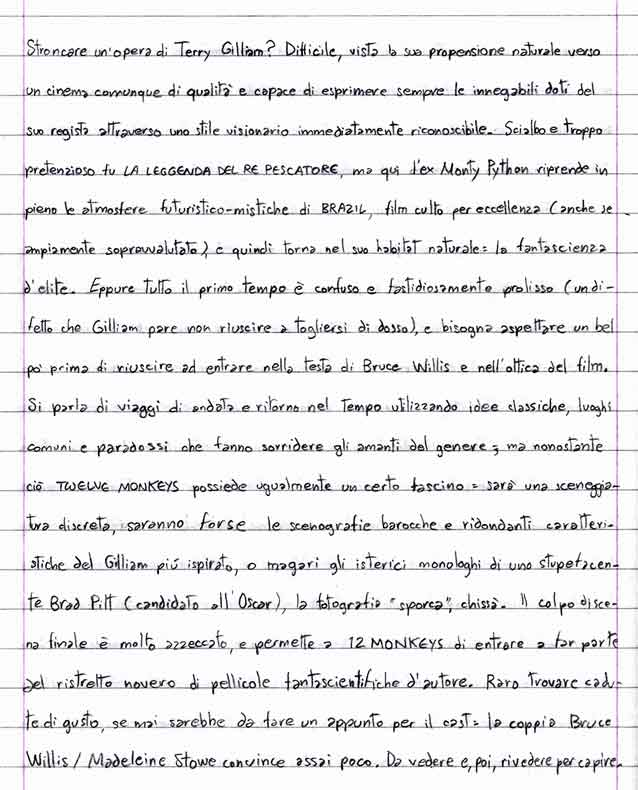 Stroncare un'opera di Terry Gilliam? Difficile, vista la sua propensione naturale verso
un cinema comunque di qualità e capace di esprimere sempre le innegabili doti del
suo regista attraverso uno stile visionario immediatamente riconoscibile. Scialbo e troppo
pretenzioso fu LA LEGGENDA DEL RE PESCATORE, ma qui l'ex Monty Python riprende in
pieno le atmosfere futuristico-mistiche di BRAZIL, film culto per eccellenza (anche se
ampiamente sopravvalutato) e quindi torna nel suo habitat naturale: la fantascienza
d'elite. Eppure tutto il primo tempo è confuso e fastidiosamente prolisso (un di-
fetto che Gilliam pare non riuscire a togliersi di dosso), e bisogna aspettare un bel
po' prima di riuscire ad entrare nella testa di Bruce Willis e nell'ottica del film.
Si parla di viaggi di andata e ritorno nel tempo utilizzando idee classiche, luoghi
comuni e paradossi che fanno sorridere gli amanti del genere; ma nonostante
ciò TWELVE MONKEYS possiede ugualmente un certo fascino: sarà una sceneggia-
tura discreta, saranno forse le scenografie barocche e ridondanti caratteri-
stiche del Gilliam più ispirato, o magari gli isterici monologhi di uno stupefacen-
te Brad Pitt (candidato all'Oscar), la fotografia "sporca", chissà. Il colpo disce-
na finale è molto azzeccato, e permette a 12 MONKEYS di entrare a far parte
del ristretto novero di pellicole fantascientifiche d'autore. Raro trovare cadu-
te di gusto, se mai sarebbe da fare un appunto per il cast: la coppia Bruce
Willis / Madeleine Stowe convince assai poco. Da vedere e, poi, rivedere per capire.